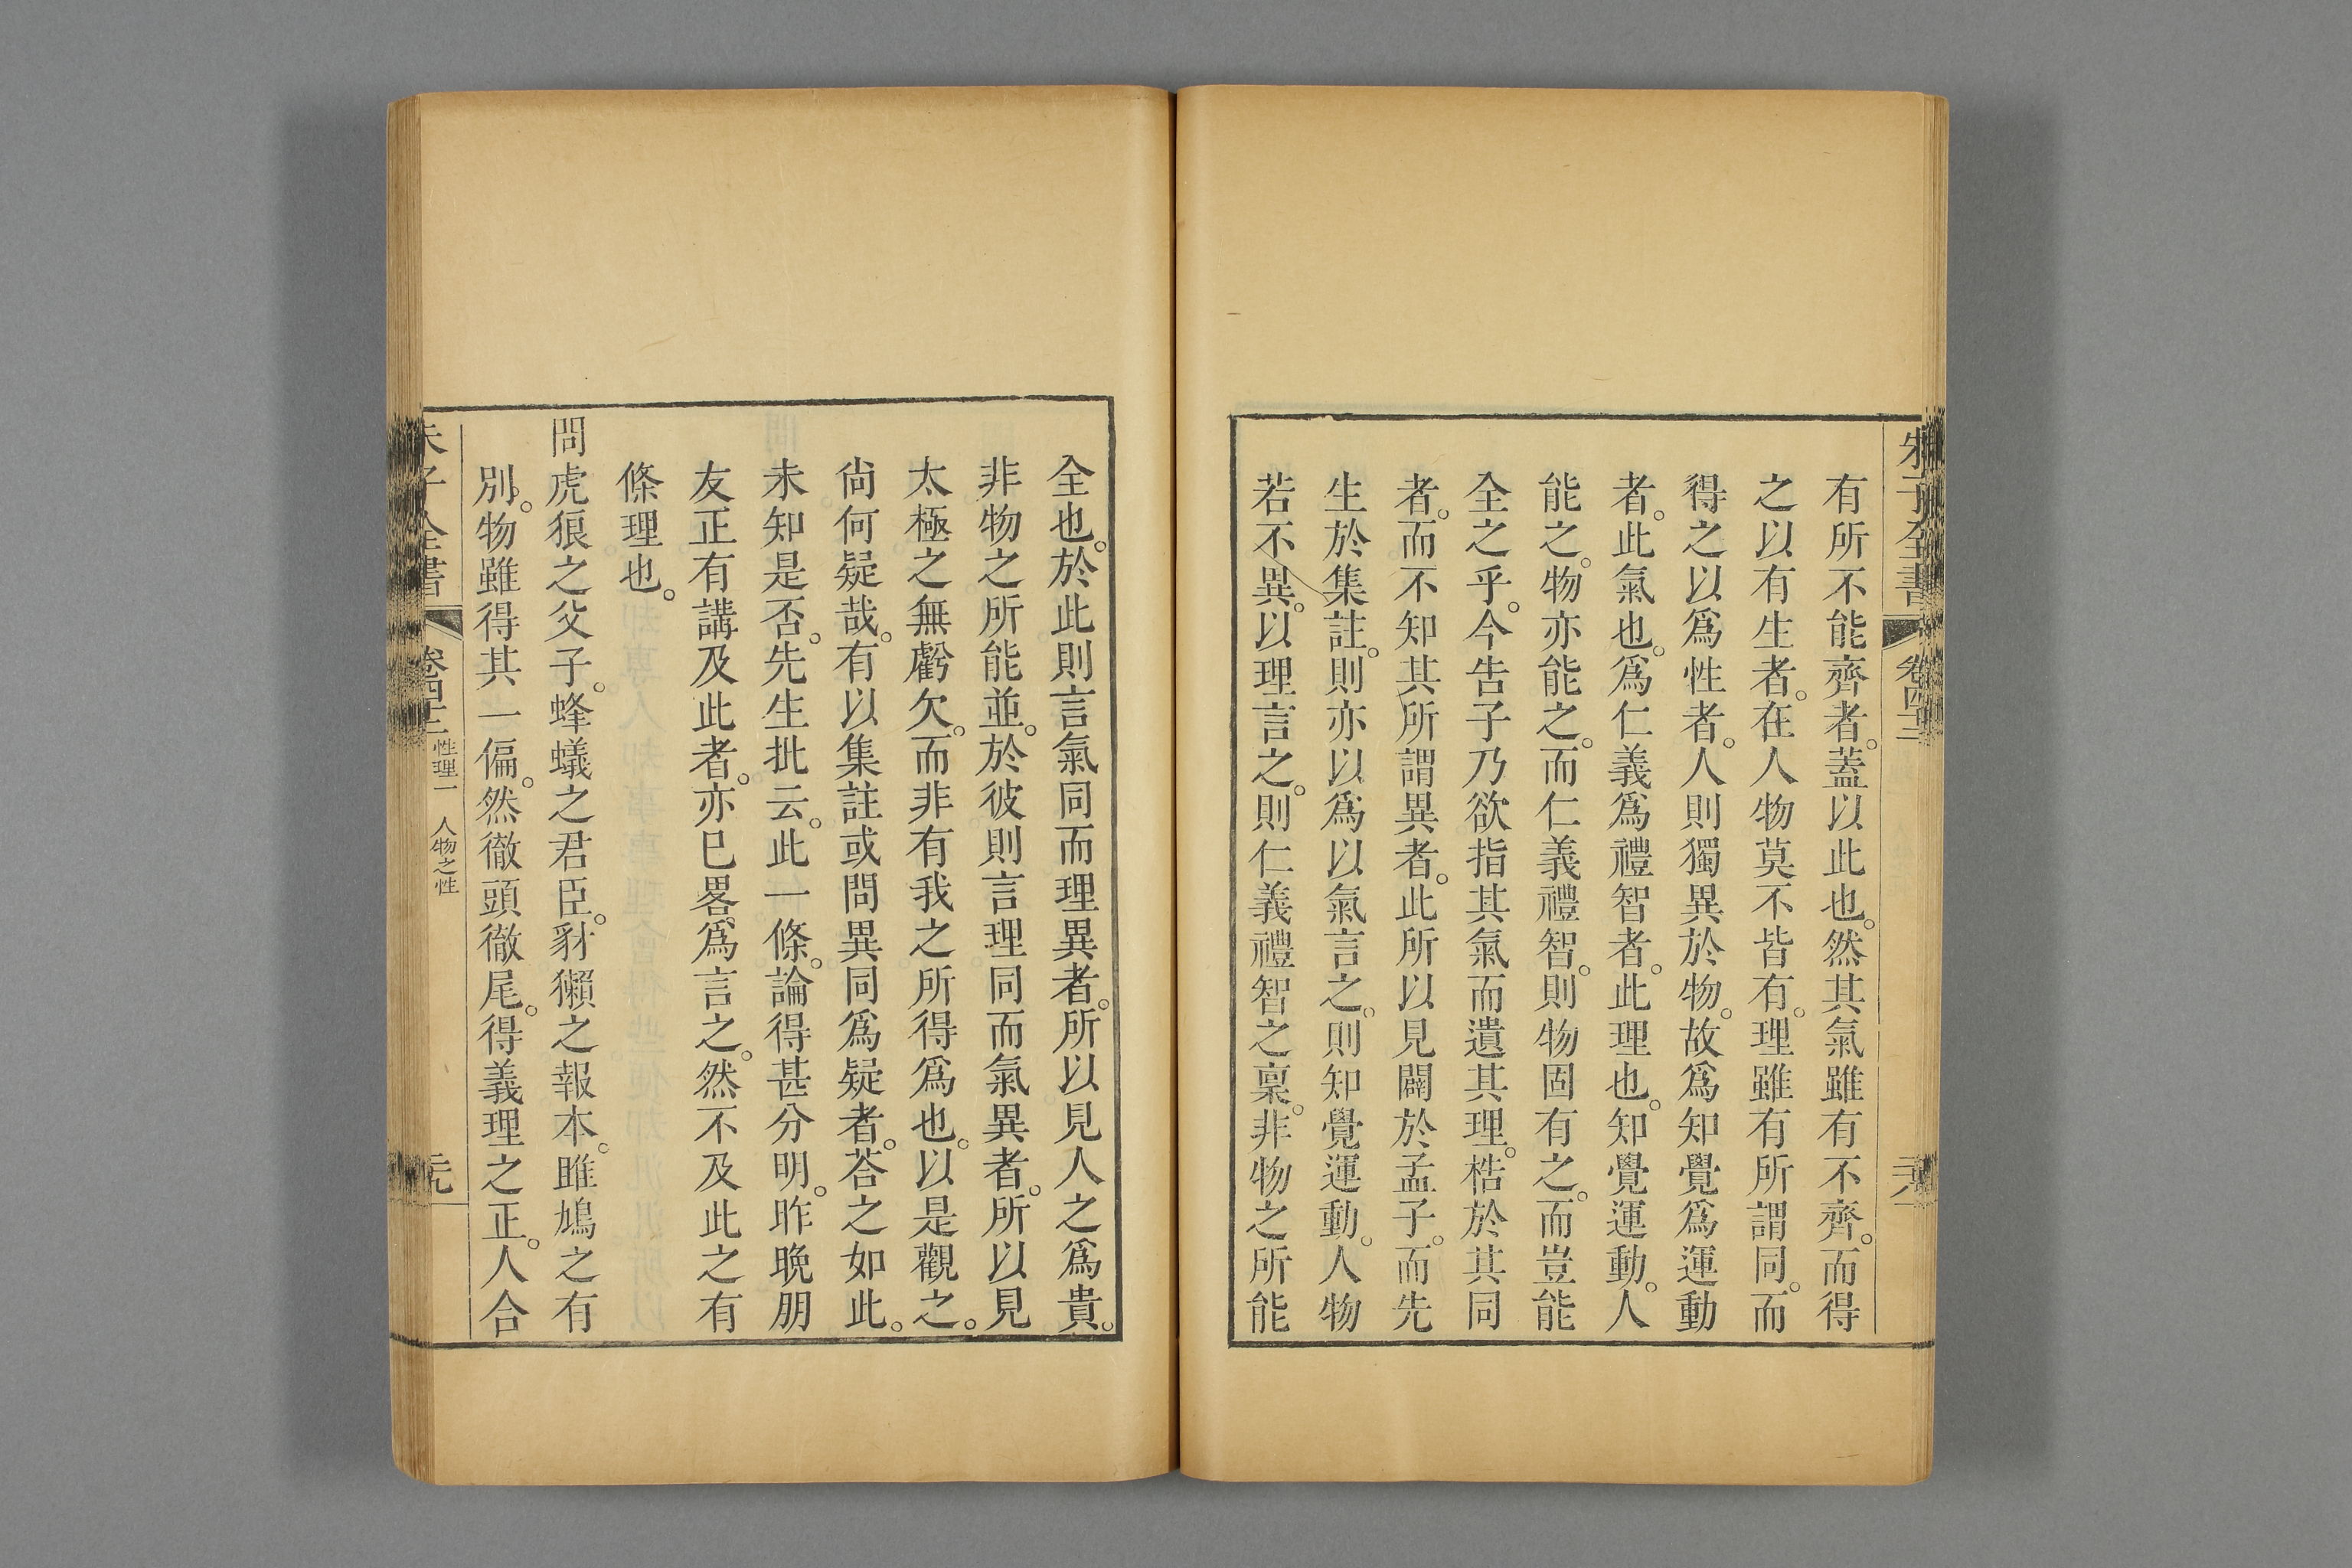 朱子全書 卷四十二
有所不能齊者。蓋以此也。然其氣雖有不齊。而得
之以有生者。在人物莫不皆有。理雖有所謂同。而
得之以爲性者。人則獨異於物。故爲知覺爲運動
者。此氣也。爲仁義爲禮智者。此理也。知覺運動。人
能之。物亦能之。而仁義禮智。則物固有之。而豈能
全之乎。今告子乃欲指其氣而遺其理。梏於其同
者。而不知其所謂異者。此所以見闢於孟子。而先
生於集註。則亦以爲以氣言之。則知覺運動。人物
若不異。以理言之。則仁義禮智之稟。非物之所能
全也。於此則言氣同而理異者。所以見人之爲貴。
非物之所能並。於彼則言理同而氣異者。所以見
太極之無虧欠。而非有我之所得爲也。以是觀之。
尙何疑哉。有以集註或問異同爲疑者。荅之如此。
未知是否。先生批云。此一條。論得甚分明。昨晚朋
友正有講及此者。亦巳畧爲言之。然不及此之有
條理也。
問虎狼之父子。蜂蟻之君臣。豺獺之報本。雎鳩之有
別。物雖得其一偏。然徹頭徹尾。得義理之正。人合
朱子全書 卷四十二 性理一 人物之性